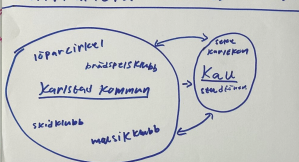 löparcirkel
brädspelsklubb
Karlstad Kommun
skidklubb
musikklubb
Karlskom
Kau